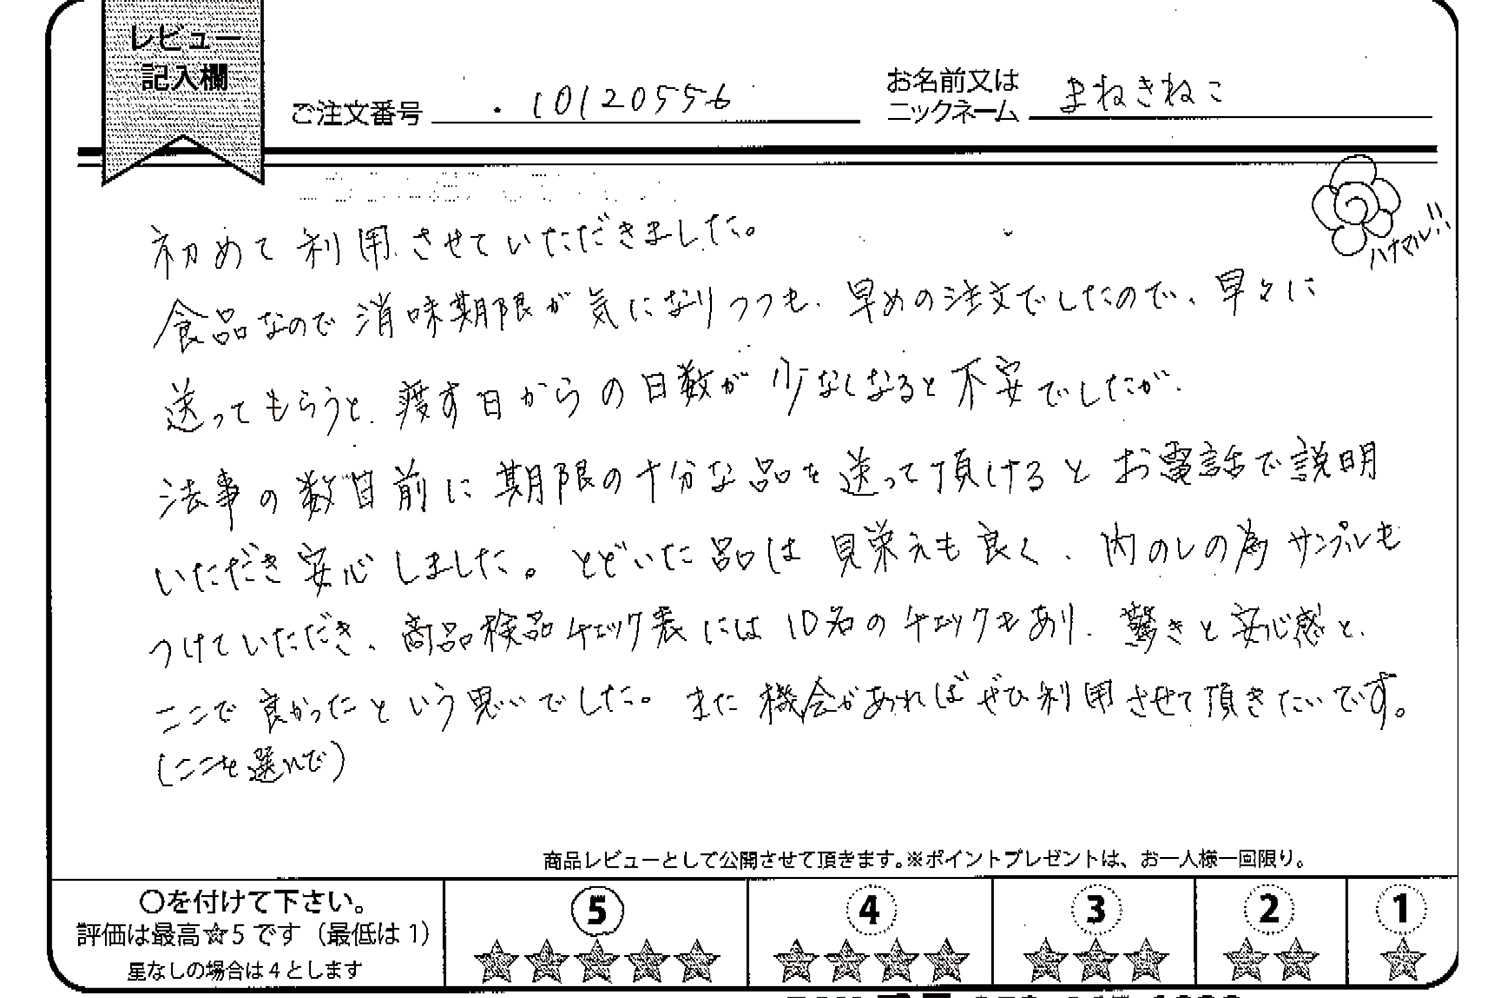 レビュー
記入欄
ご注文番号 10120556
お名前又は
ニックネーム まねきねこ
ハナマル!!
初めて利用させていただきました。
食品なので消味期限が気になりつつも、早めの注文でしたので、早々に
送ってもらうと、渡す日からの日数が少なくなると不安でしたが、
法事の数日前に期限の十分な品を送って頂けるとお電話で説明
いただき安心しました。とどいた品は見栄えも良く、内のしの為サンプルも
つけていただき、商品検品チェック表には10名のチェックもあり、驚きと安心感と、
ここで良かったという思いでした。また機会があればぜひ利用させて頂きたいです。
(ここを選んで)
商品レビューとして公開させて頂きます。※ポイントプレゼントは、お一人様一回限り。
〇を付けて下さい。
評価は最高☆5です（最低は1）
星なしの場合は4とします
5 4 3 2 1
★★★★★ ★★★★ ★★★ ★★ ★